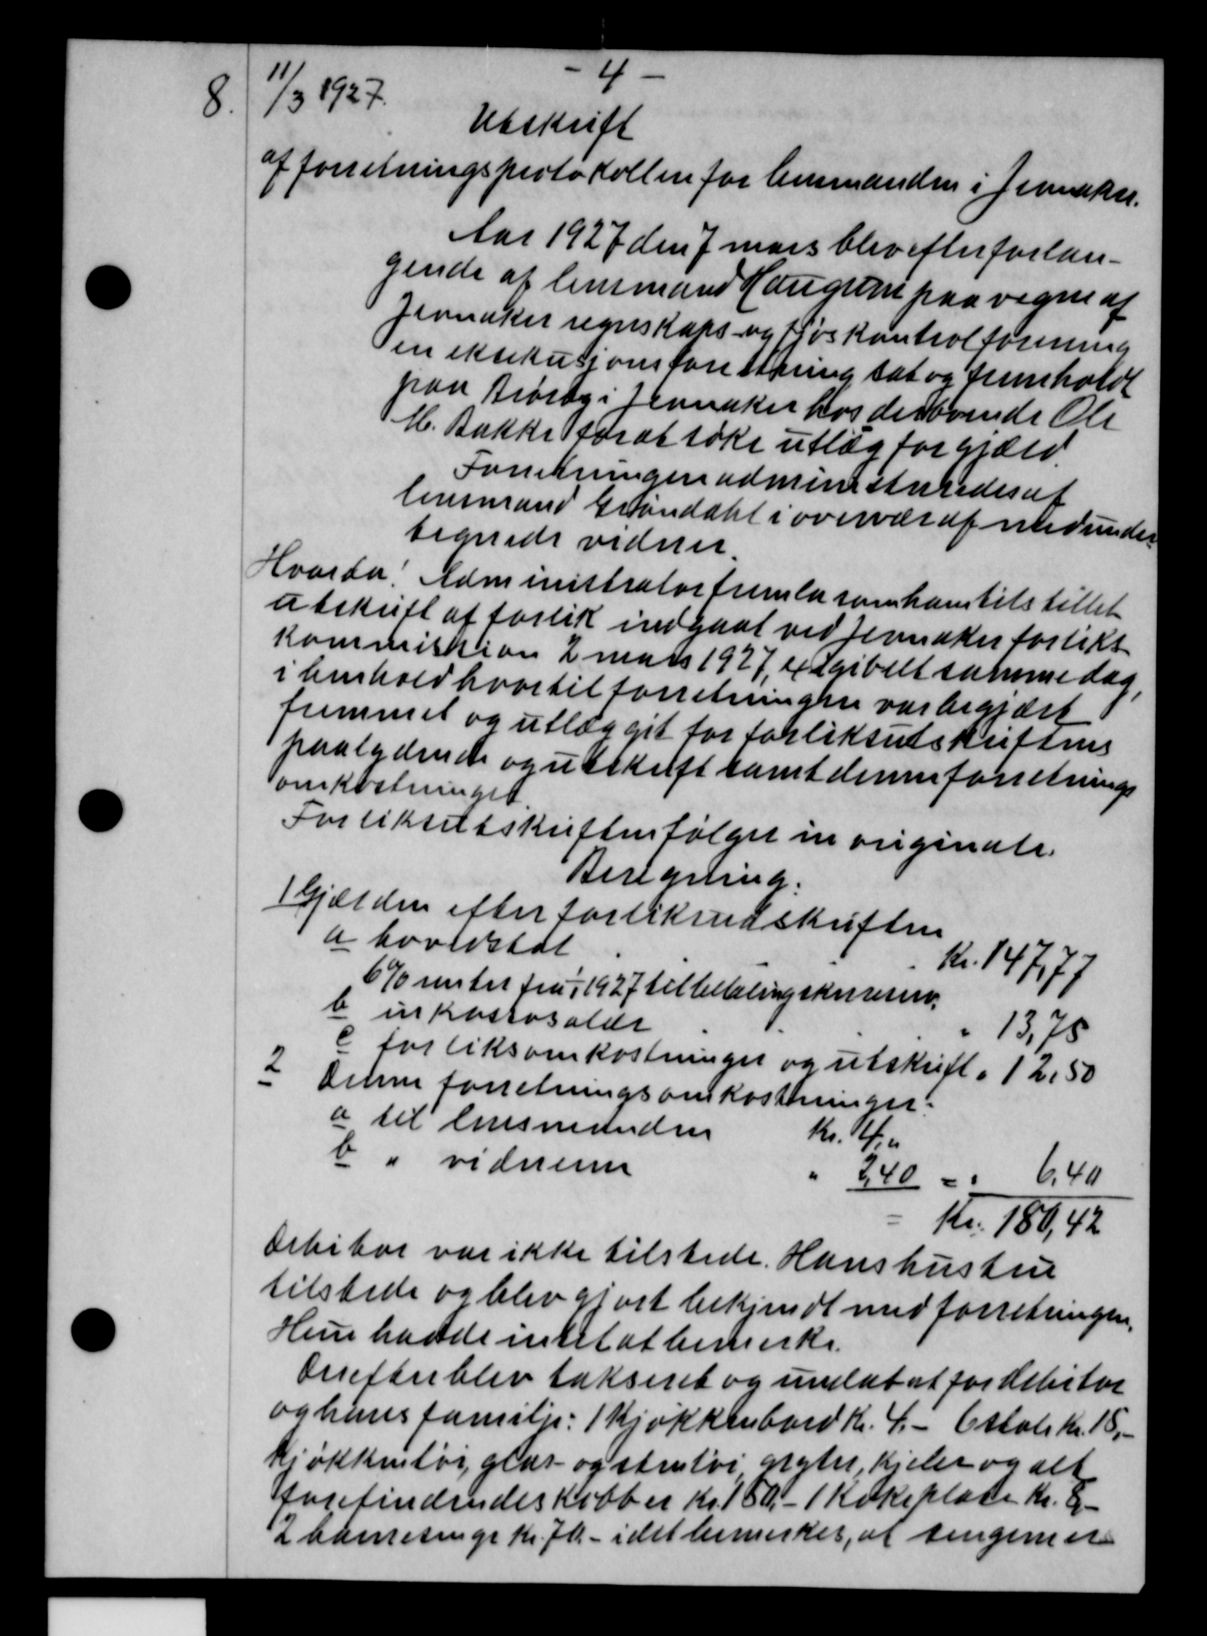 - 4 -
8. 11/3 1927.
Utskrift
af forretningsprotokollen for lensmanden i Jevnaker.
Aar 1927 den 7 mars blev efter forlan-
gende af lensmand Haugerud paa vegne af
Jevnaker regnskaps- og fjøskontrolforening
en eksekusjonsforretning sat og fremholdt
paa Brørby i Jevnaker hos derboende Ole
M. Bakke for at søke utlæg for gjæld.
Forretningen administreredes af
lensmand Grøndahl i overvær af medunder-
tegnede vidner.
Hvorda: Administrator fremla som ham tilstillet
utskrift af forlik indgaat ved Jevnaker forliks-
kommission 2 mars 1927, exigibelt samme dag,
i henhold hvortil forretningen var begjært
fremmet og utlæg git for forliksutskriftens
paalydende og utskrift samt denne forretnings
omkostninger.
Forliksutskriften følger in originale.
Beregning:
1 Gjælden efter forliksudskriften
a hovedstol . . Kr. 147,77
6% renter fra 1/1 1927 til betaling skr. reserv.
b inkassosalær . . . " 13,75
c forliksomkostninger og utskrift " 12,50
2 Denne forretnings omkostninger:
a til lensmanden Kr. 4,"
b " vidnerne " 2,40 = " 6,40
= Kr. 180,42
Debitor var ikke tilstede. Hans hustru
tilstede og blev gjort bekjendt med forretningen.
Hun hadde intet at bemerke.
Derefter blev taksert og undtat for debitor
og hans familje: 1 kjøkkenbord kr. 4.- 6 stole kr. 15,-
kjøkkentøi, glas- og stentøi, gryter, kjeler og alt
forefindendes kobber kr. 150,- 1 kokeplate kr. 8,-
2 barnesenge kr. 70.- idet bemerkes, at sengene er